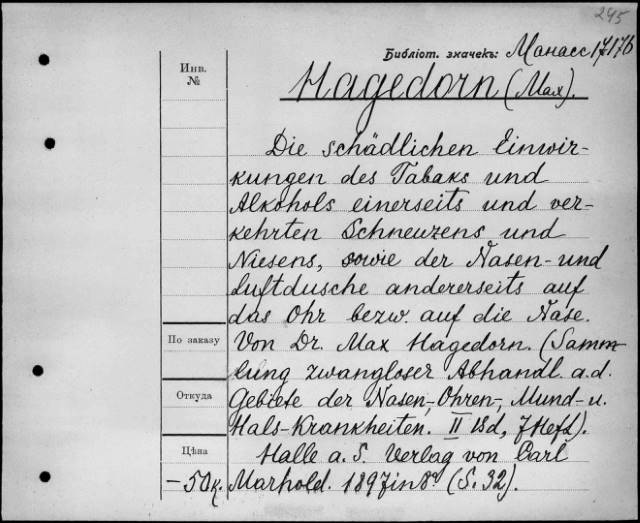 245
Библіот. значекъ: Манасс 17176
Инв.
№
Hagedorn (Max).
Die schädlichen Einwir-
kungen des Tabaks und
Alkohols einerseits und ver-
kehrten Schneuzens und
Niesens, sowie der Nasen- und
Luftdusche andererseits auf
das Ohr bezw. auf die Nase.
По заказу
Von Dr. Max Hagedorn. (Samm-
lung zwangloser Abhandl. a. d.
Откуда
Gebiete der Nasen-, Ohren-, Mund- u.
Hals-Krankheiten. II Bd, 7 Heft).
Цѣна
Halle a. S. Verlag von Carl
–50к.
Marhold. 1897 in 8º (S. 32).